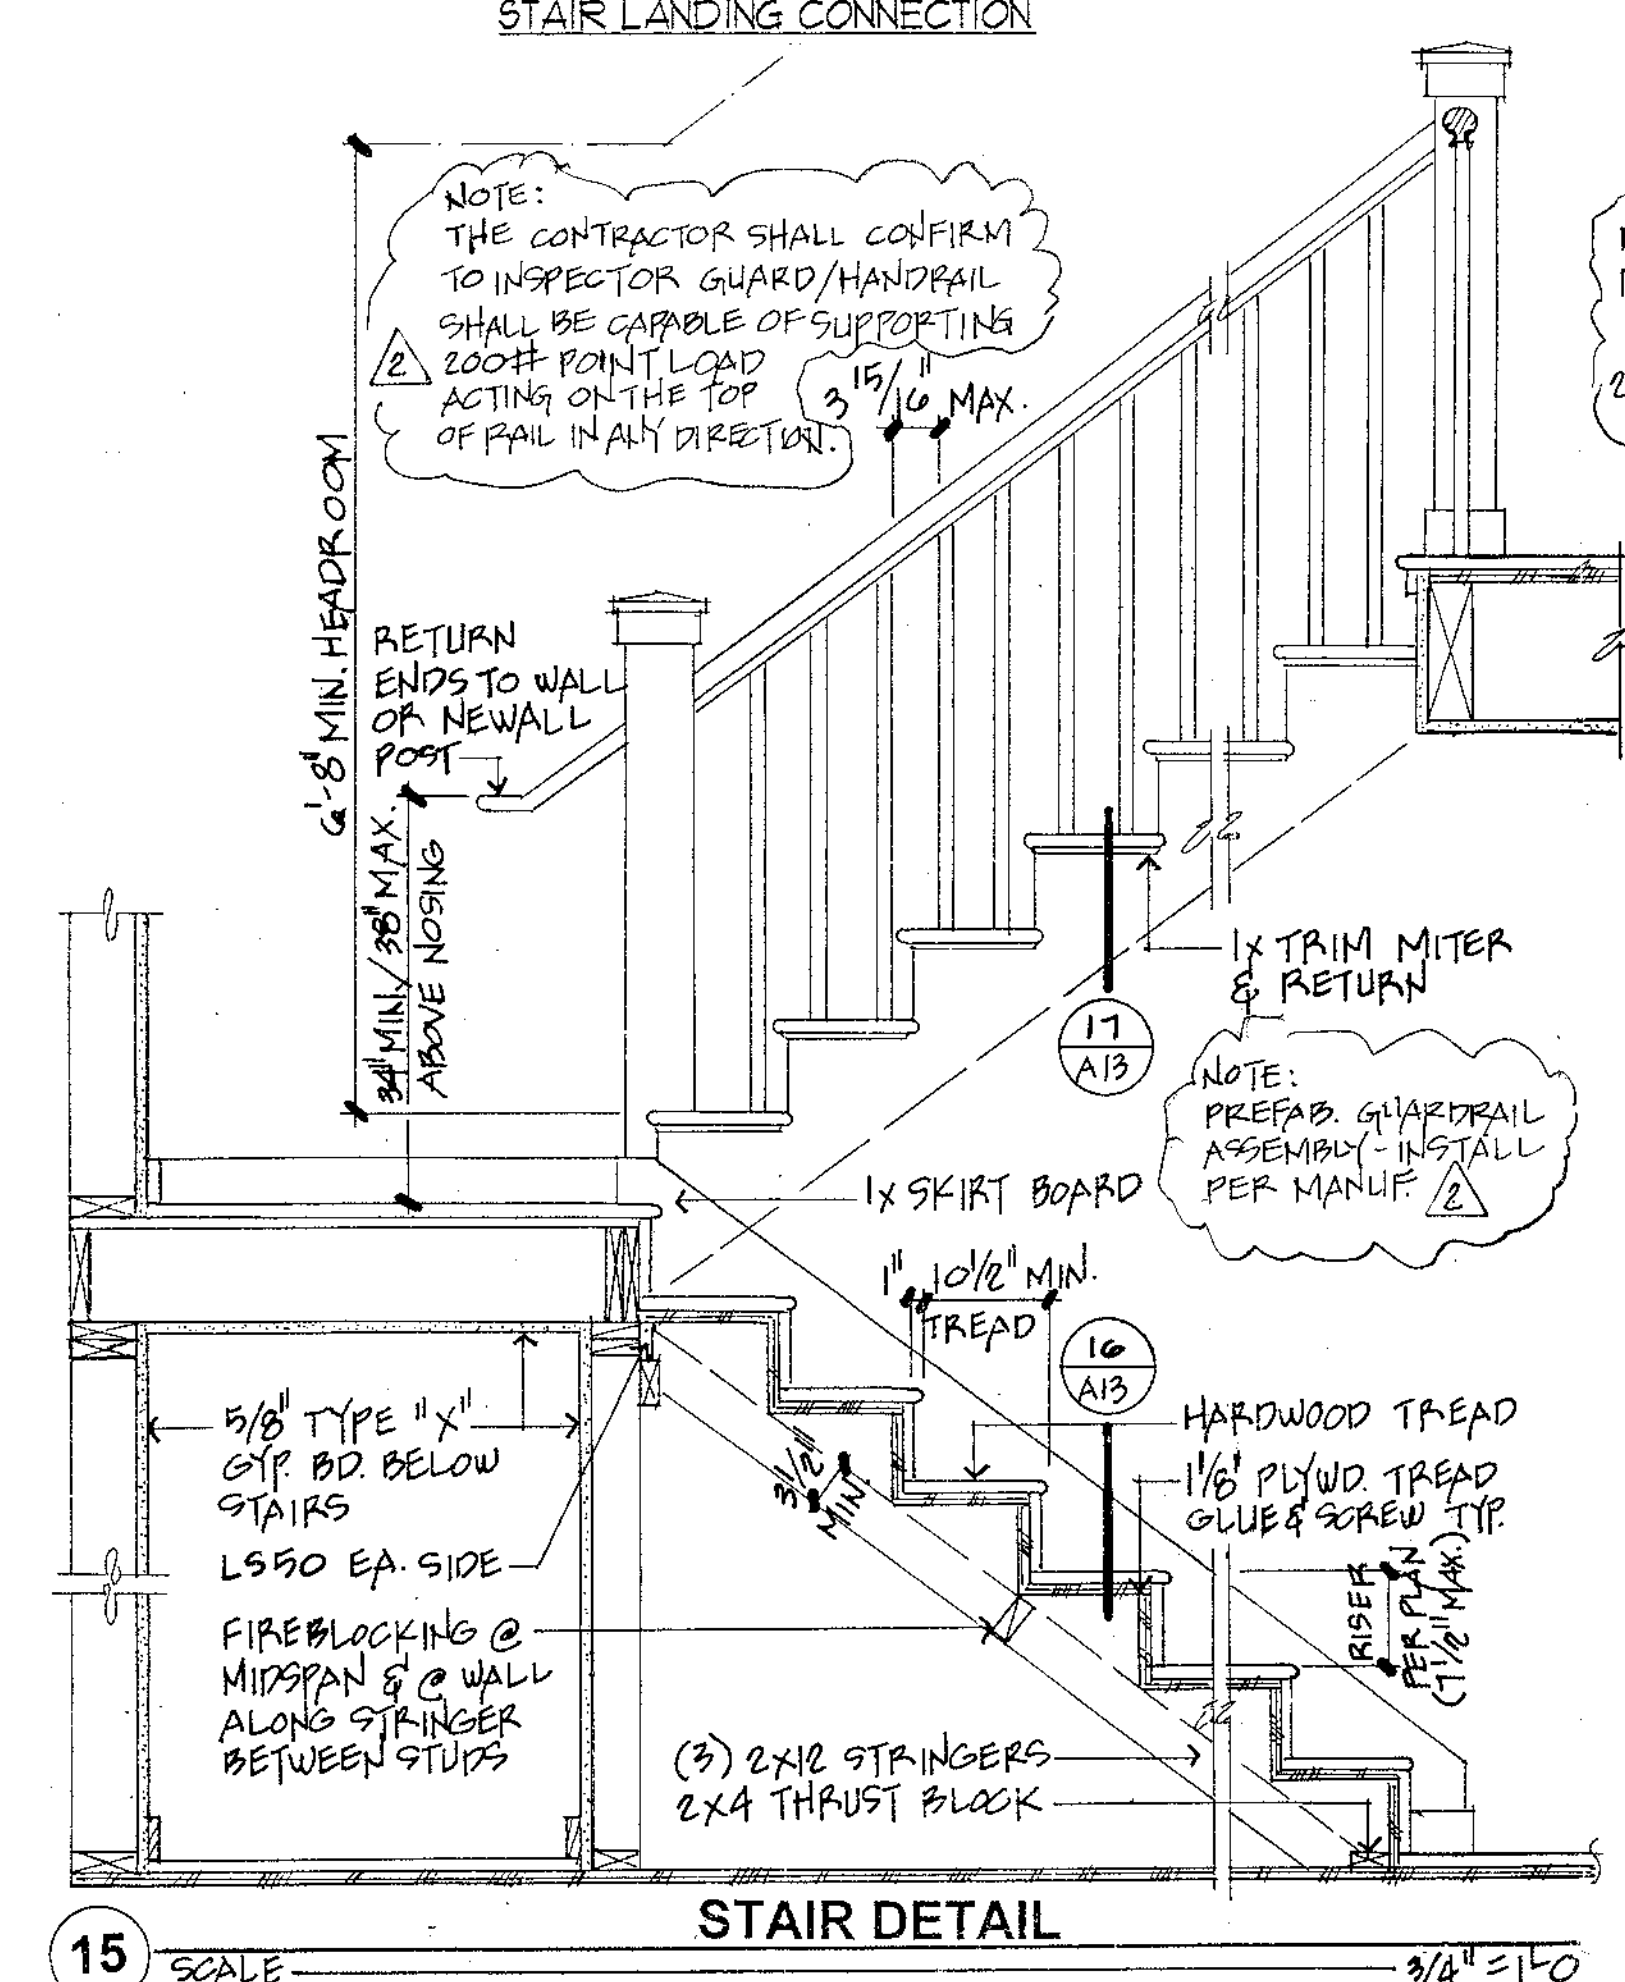 STAIR LANDING CONNECTION
NOTE:
THE CONTRACTOR SHALL CONFIRM
TO INSPECTOR GUARD/HANDRAIL
SHALL BE CAPABLE OF SUPPORTING
2
200# POINT LOAD
ACTING ON THE TOP
OF RAIL IN ANY DIRECTION.
3 15/16" MAX.
6'-8" MIN. HEADROOM
RETURN
ENDS TO WALL
OR NEWALL
POST
34" MIN./38" MAX.
ABOVE NOSING
1X TRIM MITER
& RETURN
17
A13
NOTE:
PREFAB. GUARDRAIL
ASSEMBLY - INSTALL
PER MANUF.
2
1X SKIRT BOARD
1" 10 1/2" MIN.
TREAD
16
A13
HARDWOOD TREAD
1 1/8" PLYWD. TREAD
GLUE & SCREW TYP.
5/8" TYPE "X"
GYP. BD. BELOW
STAIRS
3 1/2"
MIN.
LS50 EA. SIDE
RISER
PER PLAN
(7 1/2" MAX.)
FIREBLOCKING @
MIDSPAN & @ WALL
ALONG STRINGER
BETWEEN STUDS
(3) 2X12 STRINGERS
2X4 THRUST BLOCK
STAIR DETAIL
15
SCALE
3/4" = 1'-0
2